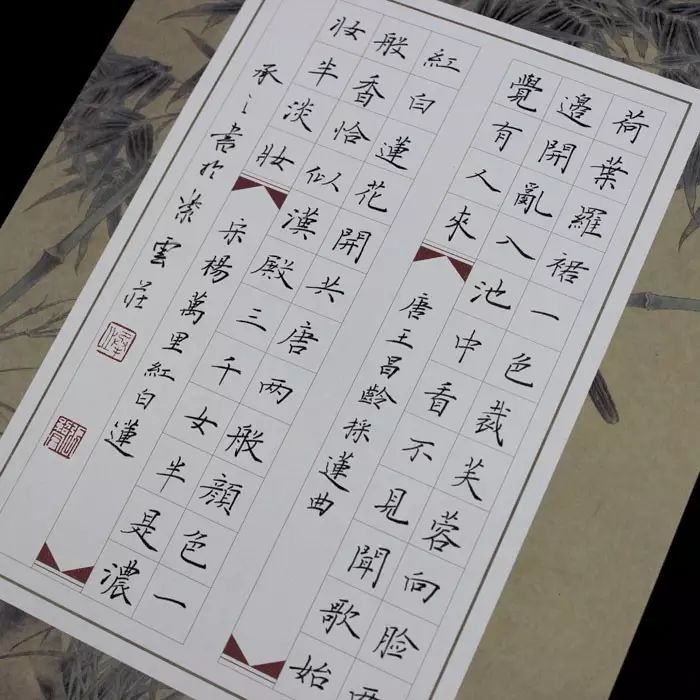 荷葉羅裙一色裁芙蓉向脸两
邊開亂入池中看不見聞歌始
覺有人來
唐王昌齡採蓮曲
紅白蓮花開共唐两般顏色一
般香恰似漢殿三千女半是濃
妝半淡妝
宋楊萬里紅白蓮
承之書於雲莊